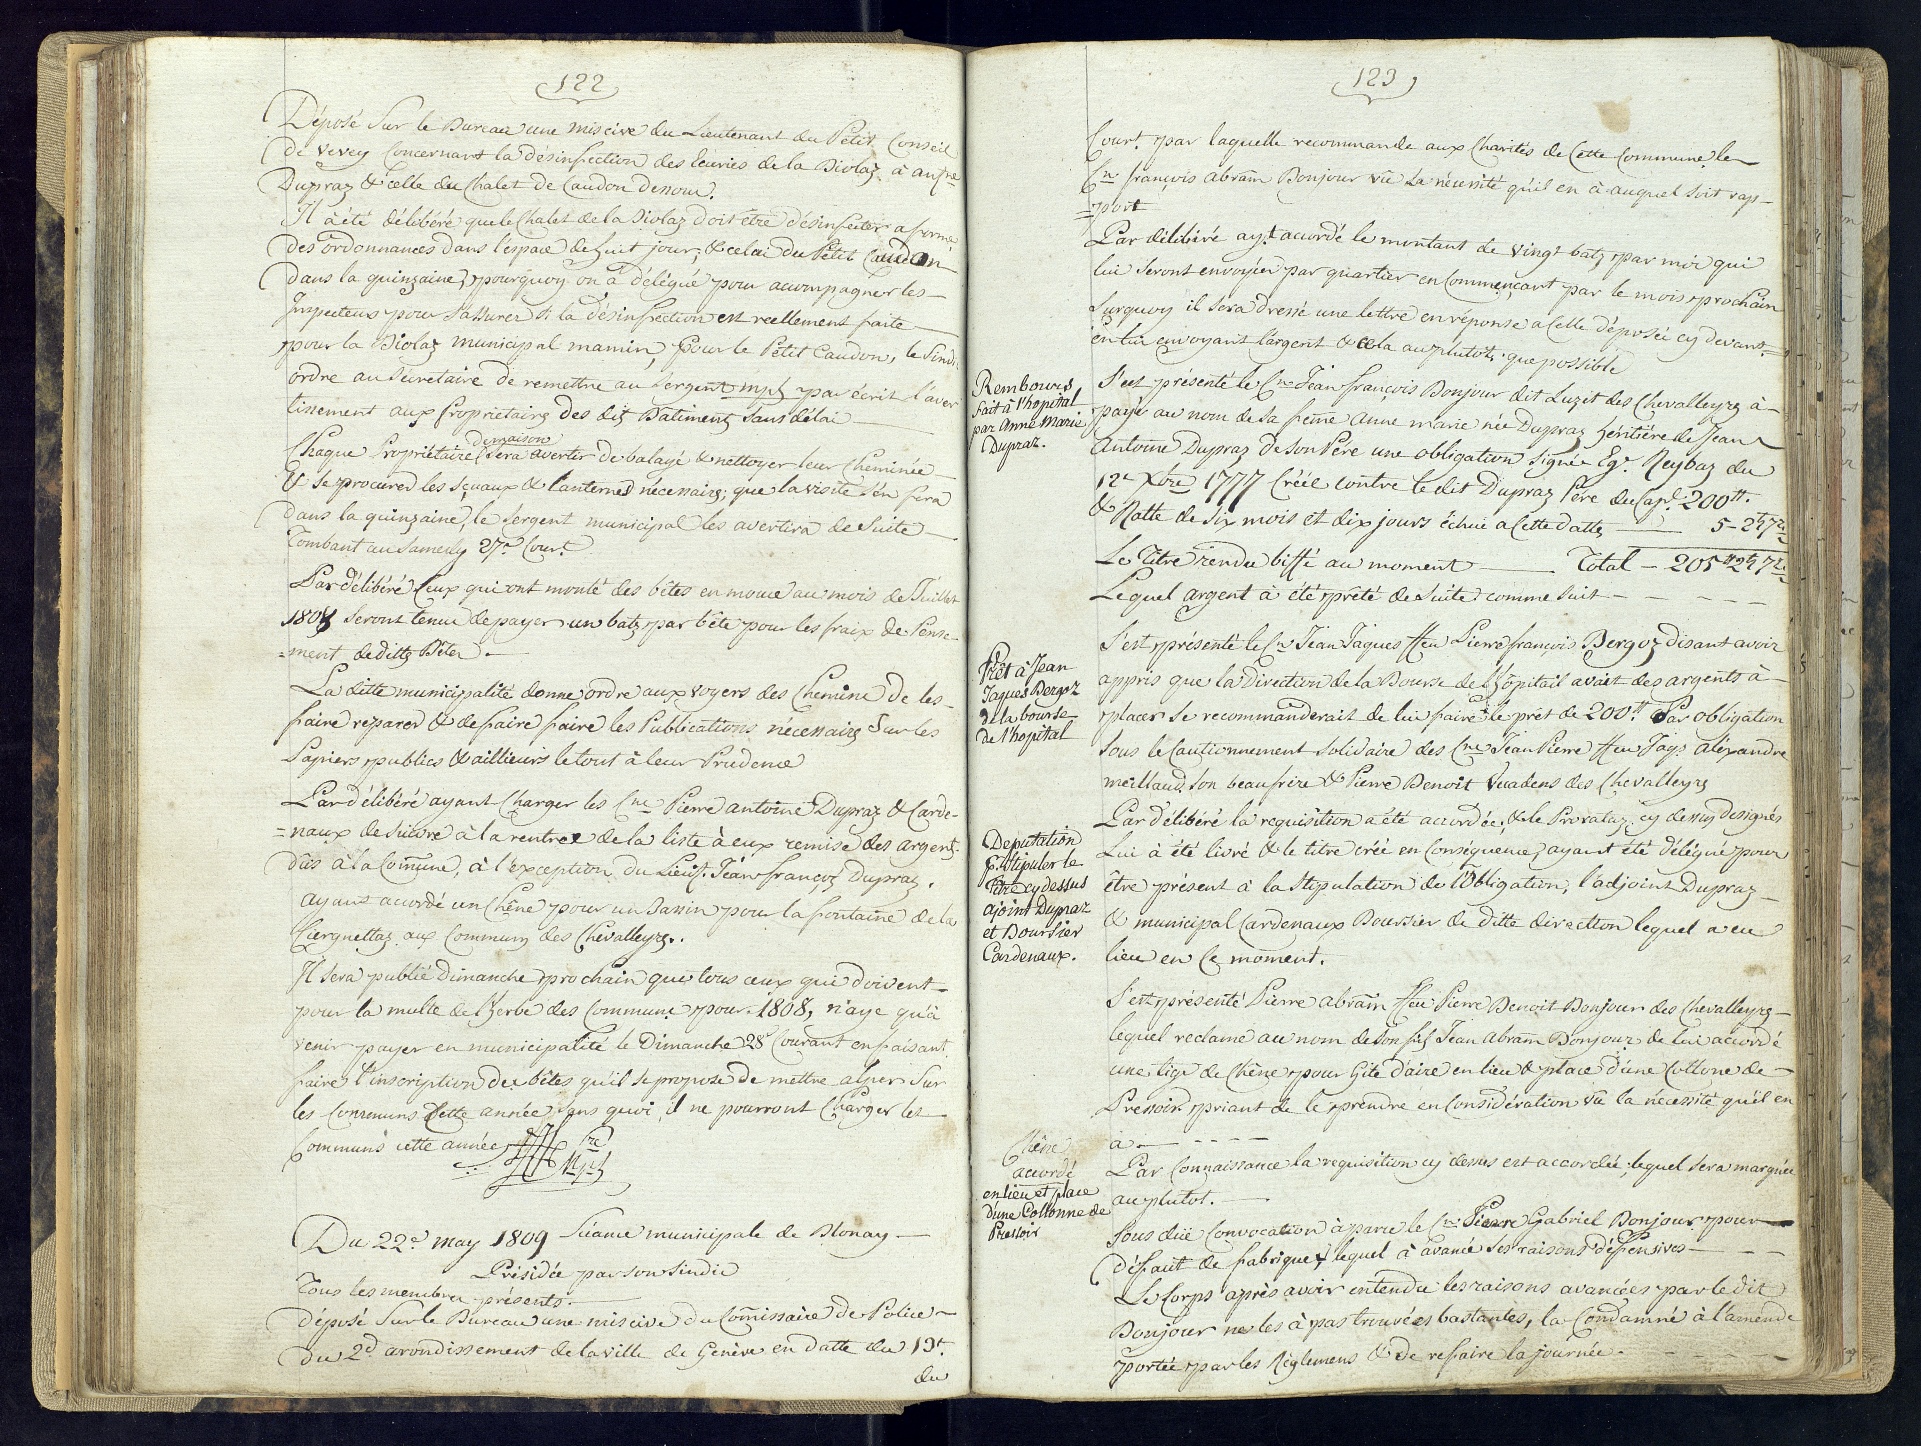 122
Déposé Sur le Bureau une miscive du Lieutenant du Petit Conseil
de Vevey Concernant la désinfection des Ecuries de la Diolaz à anfne
Dupraz & celle du Chalet de Caudon denom.
Il à été délibéré que le Chalet de la Diolaz doit être désinfecter a forme
des ordonnances dans l'espace de huit jour, & celui du Petit Caudon
dans la quinzaine, pourquoy on à délégué pour acompagner les
Inspecteurs pour Sassurer Si la désinfection est reellement faite
pour la Diolaz municipal mamin, pour le Petit Caudon, le Sindi
ordre au Secretaire de remettre au Sergent mpl par écrit l'aver
tissement aux Proprietairs des dits Batiments Sans délai
Chaque Propriétaire de maison Sera avertir de balayé & nettoyer leur Cheminée
& Se procurer les Sçeaux & Lanternes nécessairs; que la visite S'en fera
dans la quinzaine, le Sergent municipal les avertira de Suite
Tombant au Samedy 27e Court.
Par délibéré Ceux qui ont monté des bêtes en moüe au mois de Juillet
1808 Seront tenu de payer un batz par bête pour les fraix de Pense-
=ment de dittes Bêtes.
La ditte municipalité donne ordre aux voyers des Chemins de les
faire reparer & de faire faire les Publications nécessairs Sur les
Papiers publics & aillieurs le tout à leur Prudence
Par délibéré ayant Charger les Cne Pierre antoine Dupraz & Carde-
=naux de Suivre à la rentree de la liste à eux remise des argents
dûs à la Comune, à l'exception du Lieut. Jean françoys Dupraz.
ayant acordé un Chêne pour un Bassin pour la fontaine de la
Ciergnettaz aux Communs des Chevalleyrs.
Il Sera publié Dimanche prochain que tous ceux qui doivent
pour la multe de l'herbe des Commune pour 1808, n'aye qu'à
venir payer en municipalité le Dimanche 28e Courant en faisant
faire l'inscription des bêtes qu'il Se propose de mettre alper Sur
les Communs Cette année, Sans quoi il ne pourront Charger les
Communs cette année
Du 22e may 1809 Séance municipale de Blonay
Présidée par son Sindic
Tous les membres présents.
déposé Sur le Bureau une miscive du Comissaire de Police
du 2d arondissement de la ville de Genève en datte du 19t.
du
123
Court. par laquelle recommande aux Charités de Cette Commune le
Cn françois abram Bonjour vû La nécessité qu'il en à auquel Soit rap-
=port
Par délibéré ayt accordé le montant de vingt batz par moi qui
lui Seront envoyéer par quartier en Commençant par le mois prochain
Surquoy il Sera dressé une lettre en réponse a Celle déposée cy devant
en lui envoyant l'argent & cela au plutot que possible
Rembours
fait à l'hopital
par Anne Marie
Dupraz.
S'est présenté le Cn Jean françois Bonjour dit Luzet des Chevalleyrs à
payé au nom de Sa feme Anne marie née Dupraz héritière de Jean
Antoine Dupraz de Son Père une obligation Signée Egr. Reybaz du
12e Xbre 1777 Créée contre le dit Dupraz Père du Capl. 200 tt.
& Ratte de Six mois et dix jours échue a Cette datte 5-2
Le Titre rendu biffé au moment Total - 205
Lequel argent à été prêté de Suite comme Suit
Prêt à Jean
Jaques Bergoz
de la bourse
de l'hopital
S'est présenté le Cn Jean Jaques ffeu Pierre françois Bergoz disant avoir
appris que la Direction de la Bourse de l'hôpitail avait des argents à
placer Se recommanderait de lui faire le prêt de 200 tt Par obligation
Sous le Cautionnement Solidaire des Cne Jean Pierre ffeu Jaqs aléxandre
meilland Son beaufrère & Pierre Benoit Vuadens des Chevalleyrs
Deputation
p. Stipuler le
titre cy dessus
ajoint Dupraz
et Boursier
Cardenaux.
Par délibéré la requisition a été accordée, & le Prorataz cy dessus designés
Lui à été livré & le titre créé en Conséquence, ayant été délégué pour
être présent à la Stipulation de l'obligation, l'adjoint Dupraz
& municipal Cardenaux Boursier de ditte direction lequel a eu
lieu en Ce moment.
S'est présenté Pierre abram ffeu Pierre Benoit Bonjour des Chevalleyrs
lequel reclame au nom de Son fils Jean abram Bonjour de lui accordé
une tige de Chêne pour Gite d'aire en lieu & place d'une Collone de
Pressoir priant de le prendre en Considération vû la nécessité qu'il en
à
Chêne
accordé
en lieu et place
d'une Collonne de
Pressoir
Par Connaissance la requisition cy dessus est accordée, lequel Sera marquée
au plutot.
Sous düe Convocation à parue le Cn Pierre Gabriel Bonjour pour
défaut de fabrique, lequel à avancé Ses raisons défensives
Le Corps après avoir entendu les raisons avancées par le dit
Bonjour ne les à pas trouvées bastantes, la Condamné à l'amende
portée par les Réglemens & de refaire la journée.